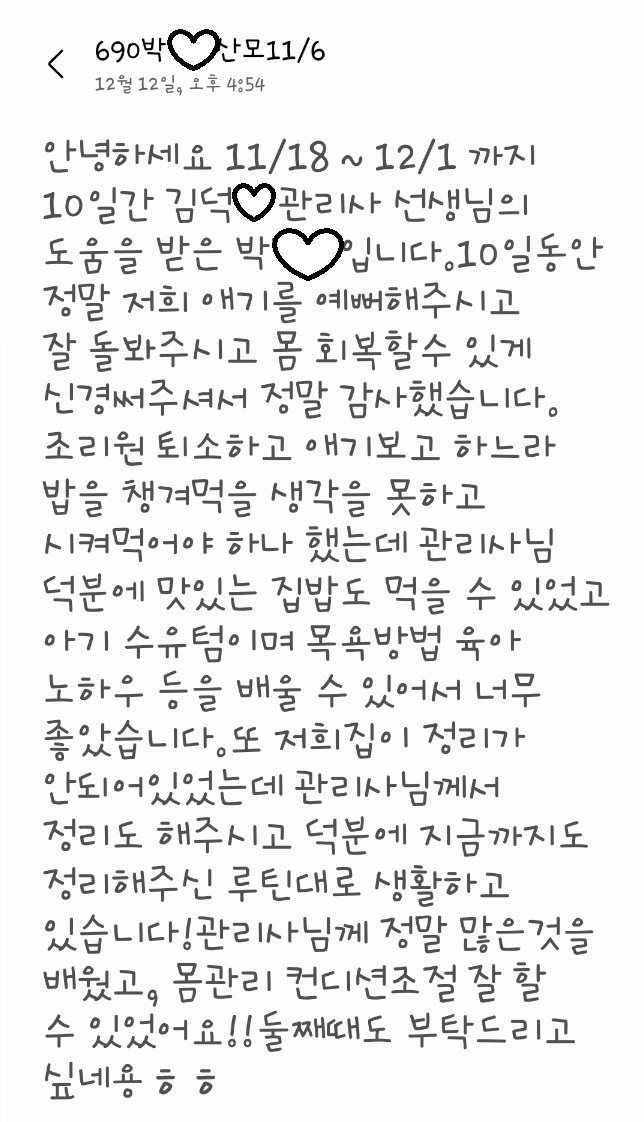 690박 산모11/6
12월 12일, 오후 4:54
안녕하세요 11/18 ~ 12/1 까지
10일간 김덕 관리사 선생님의
도움을 받은 박 입니다.10일동안
정말 저희 애기를 예뻐해주시고
잘 돌봐주시고 몸 회복할수 있게
신경써주셔서 정말 감사했습니다.
조리원 퇴소하고 애기보고 하느라
밥을 챙겨먹을 생각을 못하고
시켜먹어야 하나 했는데 관리사님
덕분에 맛있는 집밥도 먹을 수 있었고
아기 수유텀이며 목욕방법 육아
노하우 등을 배울 수 있어서 너무
좋았습니다.또 저희집이 정리가
안되어있었는데 관리사님께서
정리도 해주시고 덕분에 지금까지도
정리해주신 루틴대로 생활하고
있습니다!관리사님께 정말 많은것을
배웠고, 몸관리 컨디션조절 잘 할
수 있었어요!!둘째때도 부탁드리고
싶네용 ㅎㅎ